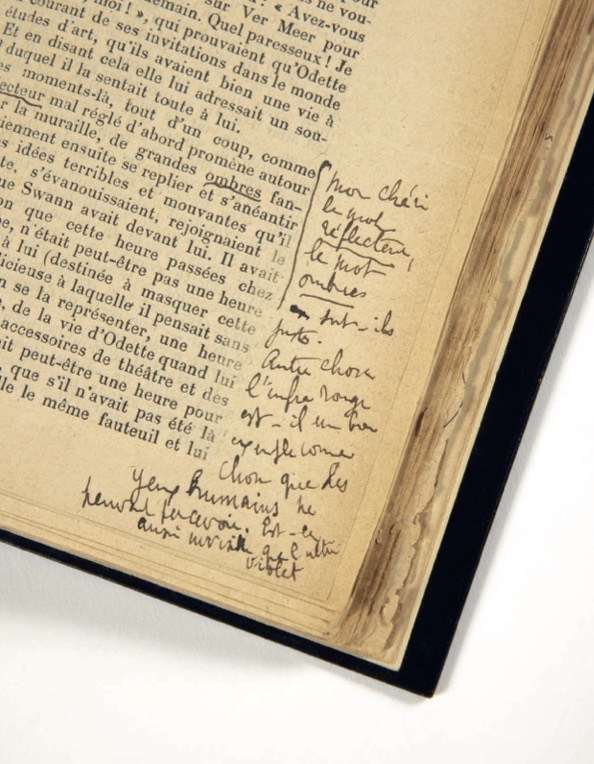 pour
sur Ver Meer pour
moi ! », qui prouvaient qu'Odette
courant de ses invitations dans le monde
études d'art, qu'ils avaient bien une vie à
Et en disant cela elle lui adressait un sou-
duquel il la sentait toute à lui.
es moments-là, tout d'un coup, comme
ecteur mal réglé d'abord promène autour
r la muraille, de grandes ombres fan-
iennent ensuite se replier et s'anéantir
s idées terribles et mouvantes qu'il
te, s'évanouissaient, rejoignaient le
ue Swann avait devant lui. Il avait
on que cette heure passées chez
pe, n'était peut-être pas une heure
à lui (destinée à masquer cette
licieuse à laquelle il pensait sans
n se la représenter, une heure
e, de la vie d'Odette quand lui
accessoires de théâtre et des
it peut-être une heure pour
, que s'il n'avait pas été là
lle le même fauteuil et lui
Mon chéri
le mot
réflecteur,
le mot
ombres
sont-ils
justes.
Autre chose
l'infra rouge
est-il un bon
exemple comme
chose que des
yeux humains ne
peuvent percevoir. Est-ce
aussi invisible que l'ultra
violet